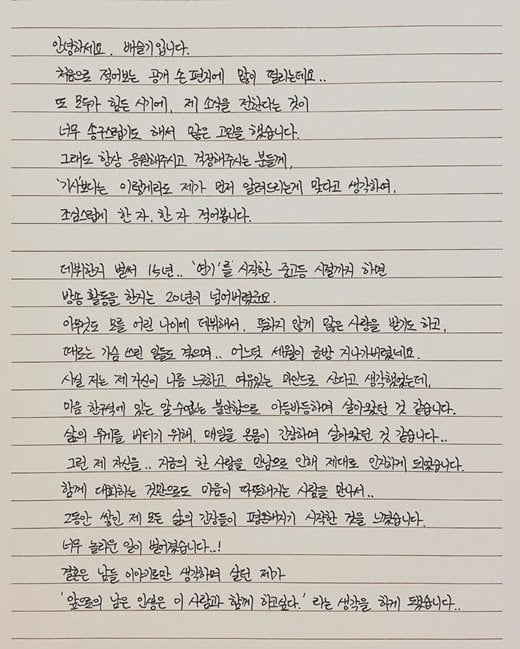 안녕하세요. 배슬기입니다.
처음으로 적어보는 공개 손 편지에 많이 떨리는데요..
또 모두가 힘든 시기에, 제 소식을 전한다는 것이
너무 송구스럽기도 해서 많은 고민을 했습니다.
그래도 항상 응원해주시고 걱정해주시는 분들께,
'기사'보다는 이렇게라도 제가 먼저 알려드리는게 맞다고 생각하여,
조심스럽게 한 자, 한 자 적어봅니다.
데뷔한지 벌써 15년.. '연기'를 시작한 중고등 시절까지 하면
방송 활동을 한지는 20년이 넘어버렸군요.
아무것도 모를 어린 나이에 데뷔해서, 뜻하지 않게 많은 사랑을 받기도 하고,
때로는 가슴 쓰린 일들도 겪으며.. 어느덧 세월이 금방 지나가버렸네요.
사실 저는 제 자신이 나름 느긋하고 여유있는 마인드로 산다고 생각했었는데,
마음 한구석에 있는 알 수 없는 불안함으로 아등바등하며 살아왔던 것 같습니다.
삶의 무게를 버티기 위해, 매일을 온몸이 긴장하며 살아왔던 것 같습니다..
그런 제 자신을.. 지금의 한 사람을 만남으로 인해 제대로 인지하게 되었습니다.
함께 대화하는 것만으로도 마음이 따뜻해지는 사람을 만나서..
그동안 쌓인 제 모든 삶의 긴장들이 평온해지기 시작한 것을 느꼈습니다.
너무 놀라운 일이 벌어졌습니다..!
결혼은 남들 이야기로만 생각하며 살던 제가
'앞으로의 남은 인생은 이 사람과 함께 하고싶다.' 라는 생각을 하게 됐습니다..